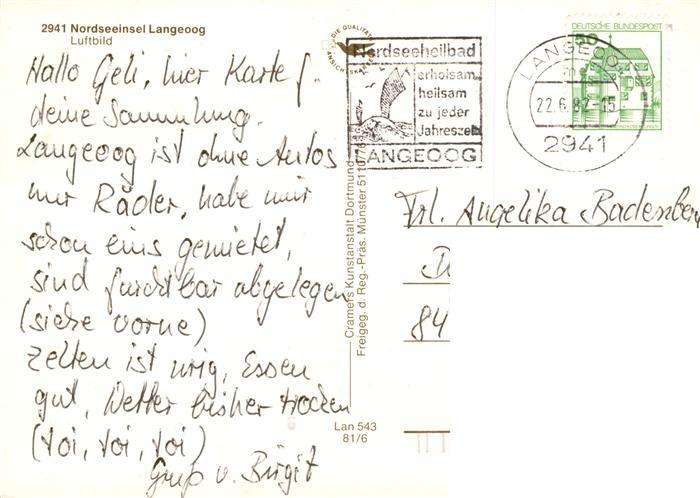 2941 Nordseeinsel Langeoog
Luftbild
Hallo Geli, hier Karte f.
deine Sammlung.
Langeoog ist ohne Autos
nur Räder, habe mir
schon eins gemietet,
sind furchtbar abgelegen
(siehe vorne)
Zelten ist urig, Essen
gut, Wetter bisher trocken
(toi, toi, toi)
Gruß v. Birgit
DIE QUALITÄTS
ANSICHTSKARTE
Cramers Kunstanstalt Dortmund
Freigeg. d. Reg.-Präs. Münster
Lan 543
81/6
Nordseeheilbad
erholsam
heilsam
zu jeder
Jahreszeit
LANGEOOG
LANGEOOG
22.6.82-15
2941
50
DEUTSCHE BUNDESPOST
Frl. Angelika Badenberg
84